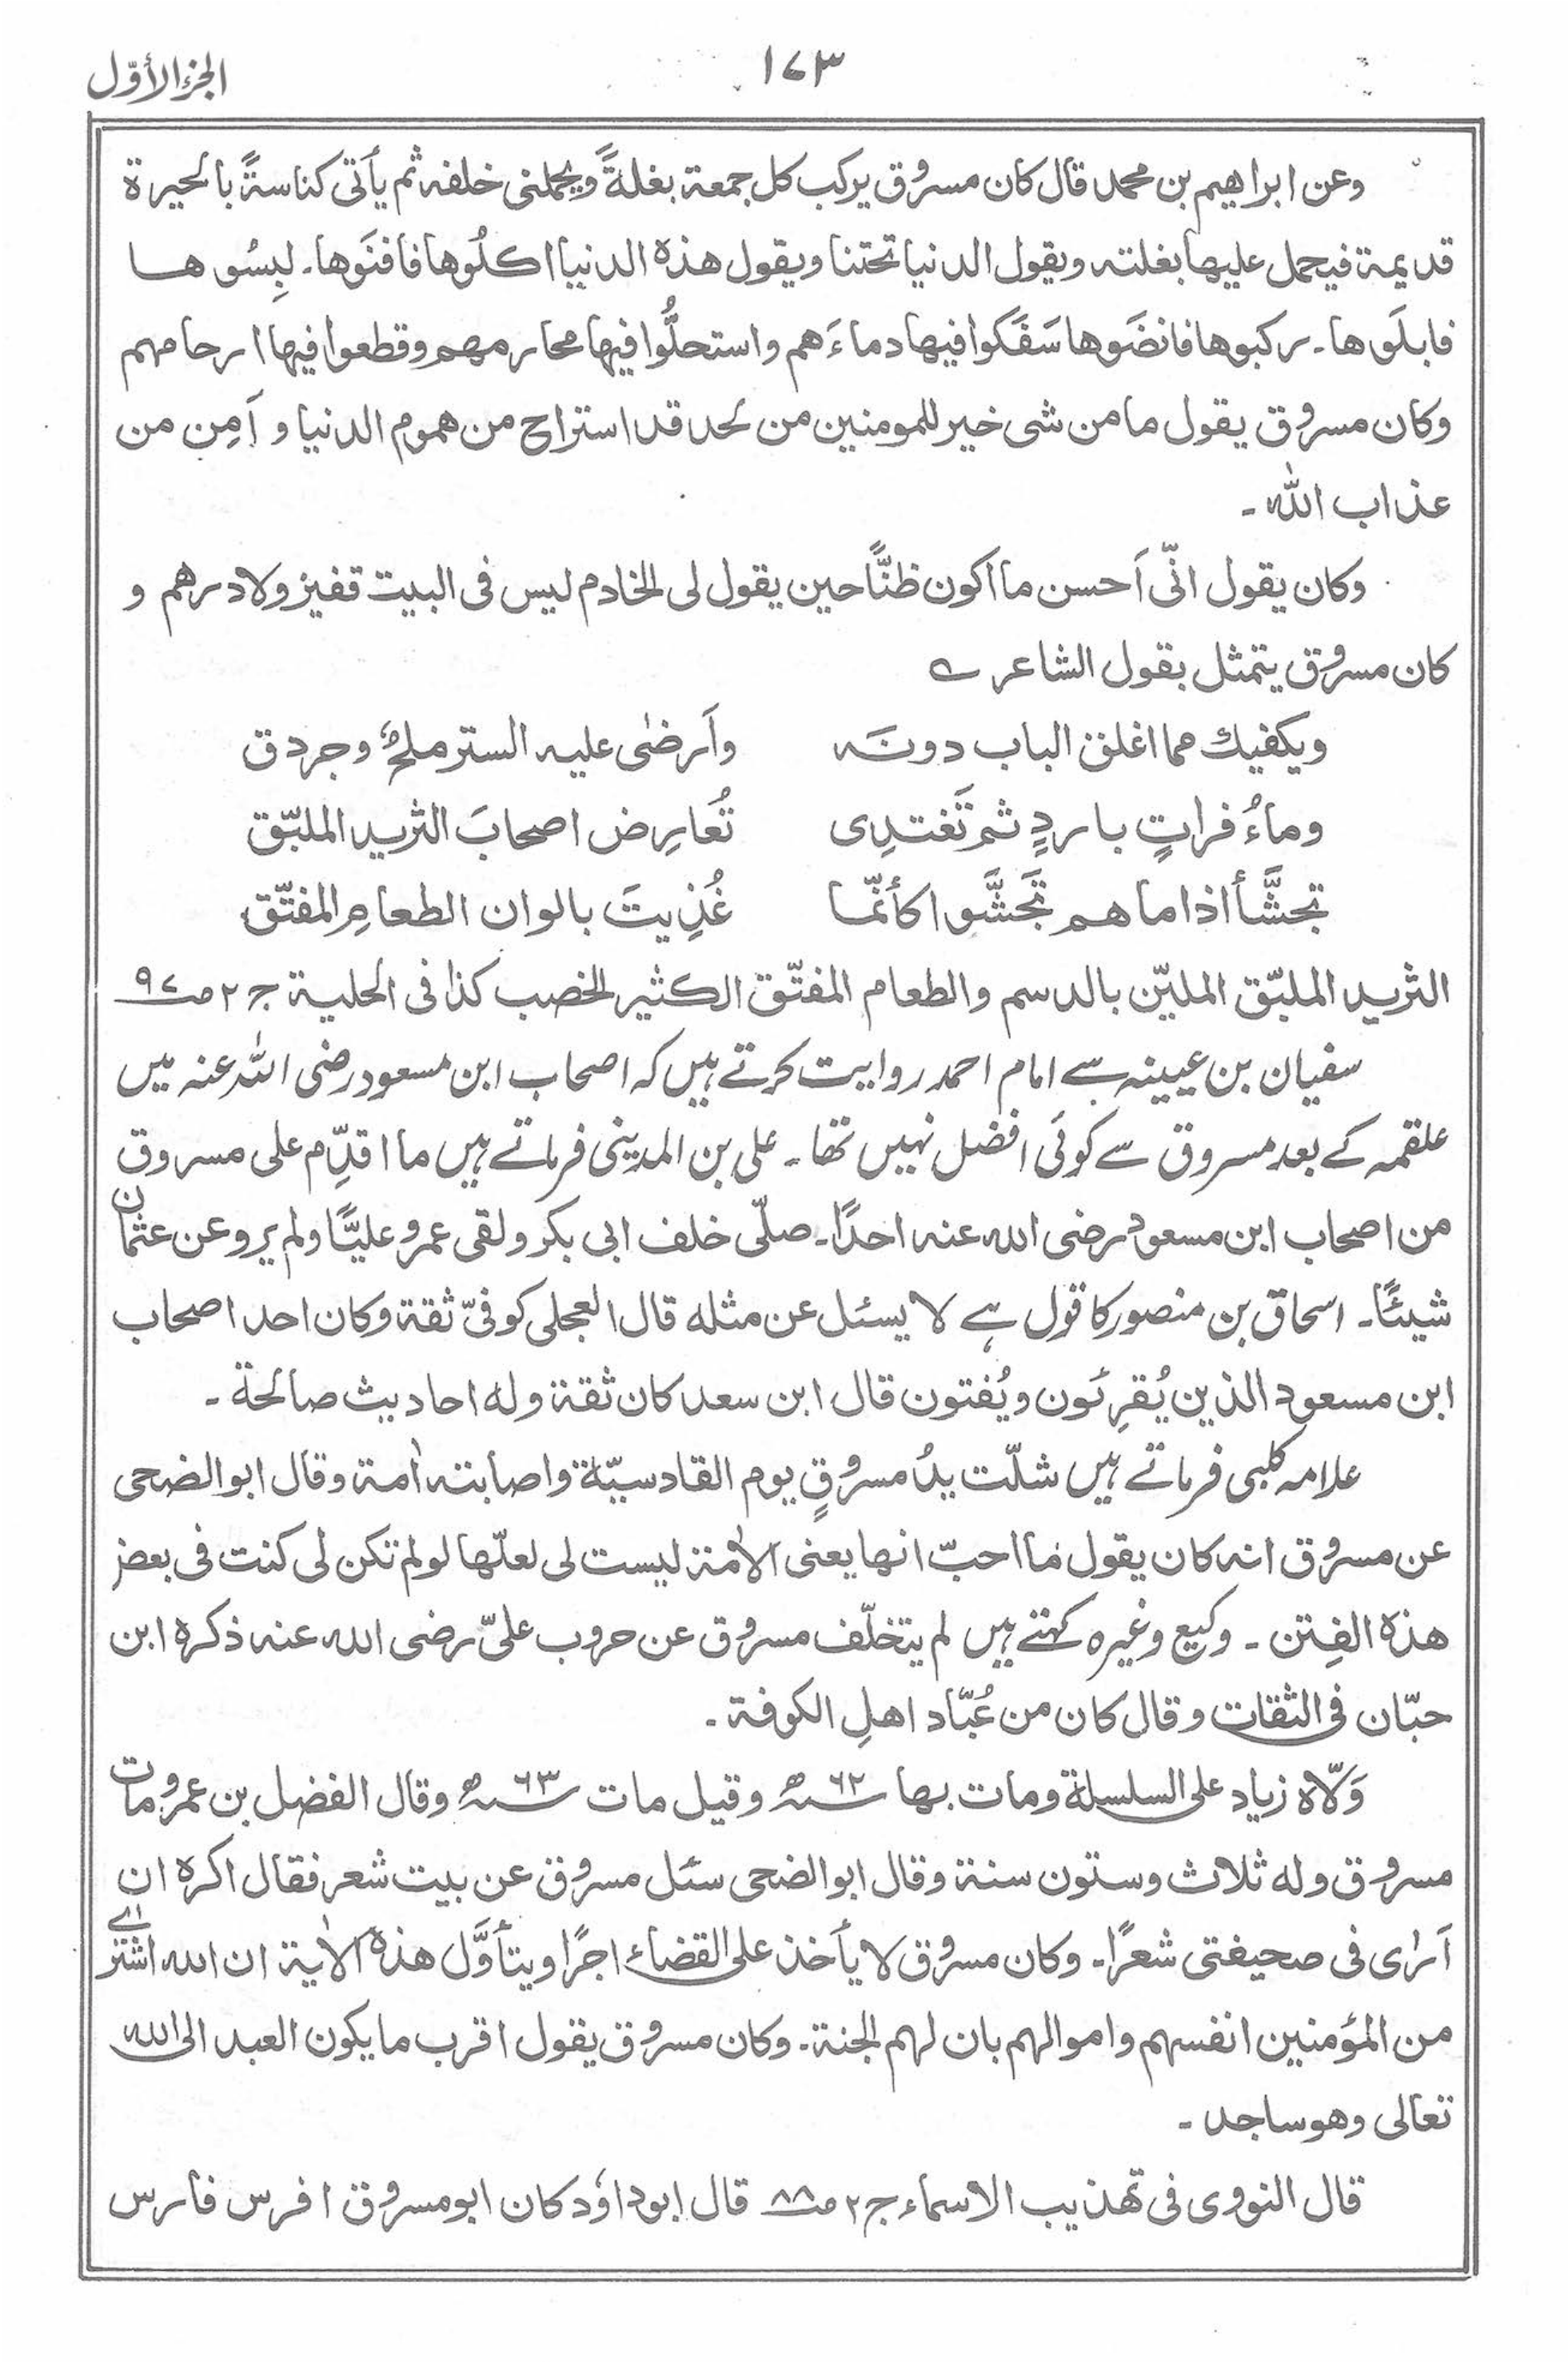 الجزء الأوّل
١٧٣
وعن ابراهيم بن محمد قال كان مسروق يركب كل جمعة بغلةً ويحملنى خلفه ثم يأتى كناسةً بالحيرة
قديمة فيحمل عليها بغلته ويقول الدنيا تحتنا ويقول هذه الدنيا اكلُوها فافنَوها۔ لبِسُوها
فابلَوها۔ ركبوها فانضَوها سَفَكوا فيها دماءَهم واستحلُّوا فيها محارمهم وقطعوا فيها ارحامهم
وكان مسروق يقول ما من شى خير للمومنين من لحد قد استراح من هموم الدنيا و اَمِن من
عذاب الله۔
وكان يقول انّى اَحسن ما اكون ظنًّا حين يقول لى الخادم ليس فى البيت قفيز ولا درهم و
كان مسروق يتمثل بقول الشاعر ؎
ويكفيك مما اغلق الباب دونَه وأرضٰى عليه الستر ملحٌ وجردق
وماءُ فراتٍ باردٍ ثم تَغتدِى تُعارِض اصحابَ الثريد الملبّق
تجشَّأ اذا ما هم تَجَشَّوا كأنّما غُذِيتَ بالوان الطعامِ المفتّق
الثريد الملبّق المليّن بالدسم والطعام المفتّق الكثير الخصب كذا فى الحلية ج ٢ ص ٩٧
سفیان بن عیینہ سے امام احمد روایت کرتے ہیں کہ اصحاب ابن مسعود رضی اللہ عنہ میں
علقمہ کے بعد مسروق سے کوئی افضل نہیں تھا۔ علی بن المدینی فرماتے ہیں ما اقدّم على مسروق
من اصحاب ابن مسعود رضى الله عنه احدًا۔ صلّى خلف ابى بكر ولقى عمر و عليًّا ولم يرو عن عثمان
شيئًا۔ اسحاق بن منصور کا قول ہے لا يسئل عن مثله قال العجلى كوفىّ ثقة وكان احد اصحاب
ابن مسعود الذين يُقرِئون ويُفتون قال ابن سعد كان ثقة وله احاديث صالحة۔
علامہ کلبی فرماتے ہیں شلّت يدُ مسروقٍ يوم القادسيّة واصابته اٰمة وقال ابو الضحى
عن مسروق انه كان يقول ما احبّ انها يعنى الاٰمة ليست لى لعلّها لو لم تكن لى كنت فى بعض
هذه الفِتن۔ وکیع وغیرہ کہتے ہیں لم يتخلّف مسروق عن حروب علىّ رضى الله عنه ذكره ابن
حبّان فى الثقات وقال كان من عُبّاد اهلِ الكوفة۔
وَلّاه زياد على السلسلة ومات بها سنة ٦٢ھ وقيل مات سنة ٦٣ھ وقال الفضل بن عمرو مات
مسروق وله ثلاث وستون سنة وقال ابو الضحى سئل مسروق عن بيت شعر فقال اكره ان
اَرٰى فى صحيفتى شعرًا۔ وكان مسروق لا يأخذ على القضاء اجرًا ويتأوَّل هذه الاٰية ان الله اشترى
من المؤمنين انفسهم واموالهم بان لهم الجنة۔ وكان مسروق يقول اقرب ما يكون العبد الى الله
تعالى وهو ساجد۔
قال النووى فى تهذيب الاسماء ج ٢ ص ٨٨ قال ابوداؤد كان ابو مسروق افرس فارس